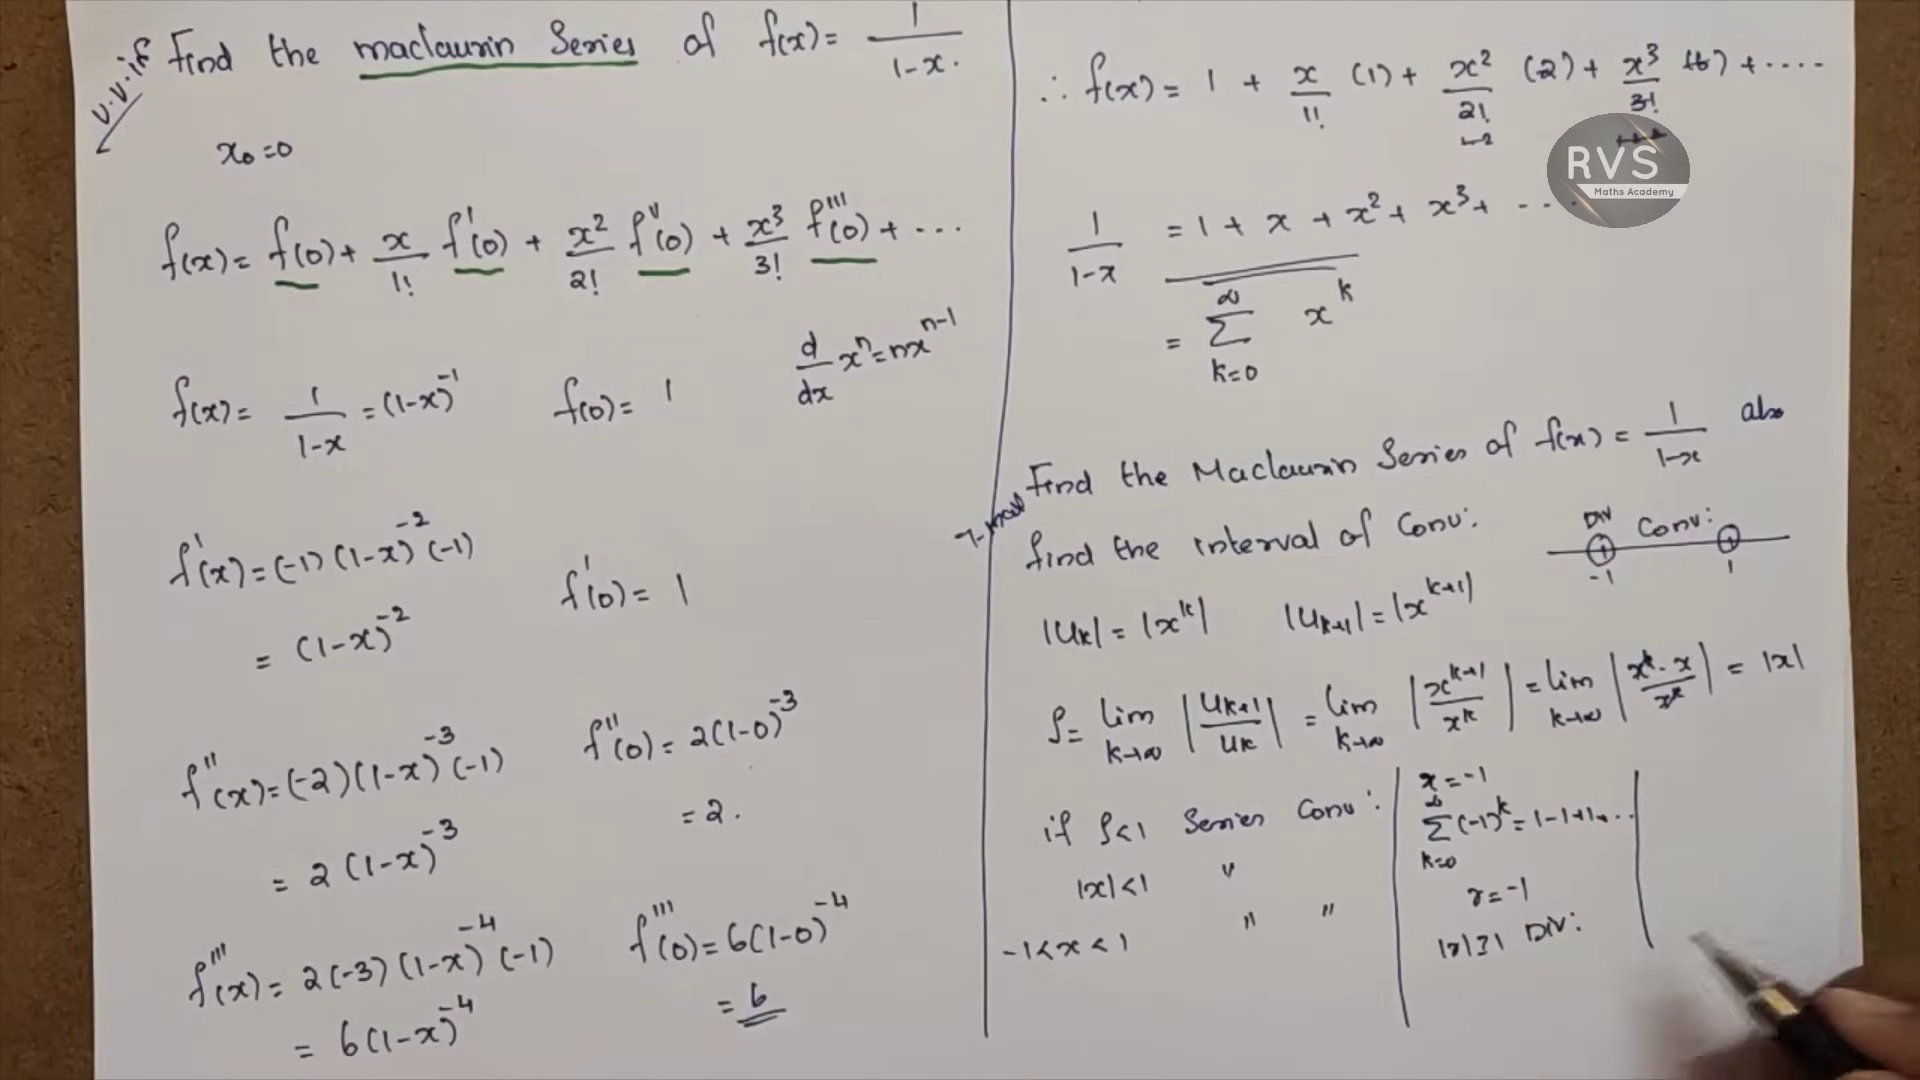 v.v.if Find the maclaurin Series of f(x) = 1/(1-x).
x₀=0
f(x) = f(0) + x/1! f'(0) + x²/2! f''(0) + x³/3! f'''(0) + ...
d/dx xⁿ = nxⁿ⁻¹
f(x) = 1/(1-x) = (1-x)⁻¹ f(0) = 1
f'(x) = (-1)(1-x)⁻²(-1)
= (1-x)⁻² f'(0) = 1
f''(x) = (-2)(1-x)⁻³(-1) f''(0) = 2(1-0)⁻³
= 2(1-x)⁻³ = 2.
f'''(x) = 2(-3)(1-x)⁻⁴(-1) f'''(0) = 6(1-0)⁻⁴
= 6(1-x)⁻⁴ = 6
∴ f(x) = 1 + x/1! (1) + x²/2! (2) + x³/3! (6) + ....
1·2
RVS
Maths Academy
1/(1-x) = 1 + x + x² + x³ + ....
= ∑_{k=0}^{∞} x^k
Find the Maclaurin Series of f(x) = 1/(1-x) also
find the interval of Conv:
Div Conv:
-1 1
|U_k| = |x^k| |U_{k+1}| = |x^{k+1}|
ρ = lim_{k→∞} |U_{k+1}/U_k| = lim_{k→∞} |x^{k+1}/x^k| = lim_{k→∞} |x^k·x/x^k| = |x|
if ρ<1 Series Conv:
|x|<1 "
-1<x<1 " "
x=-1
∑_{k=0}^{∞} (-1)^k = 1-1+1...
r=-1
|r|≥1 Div: